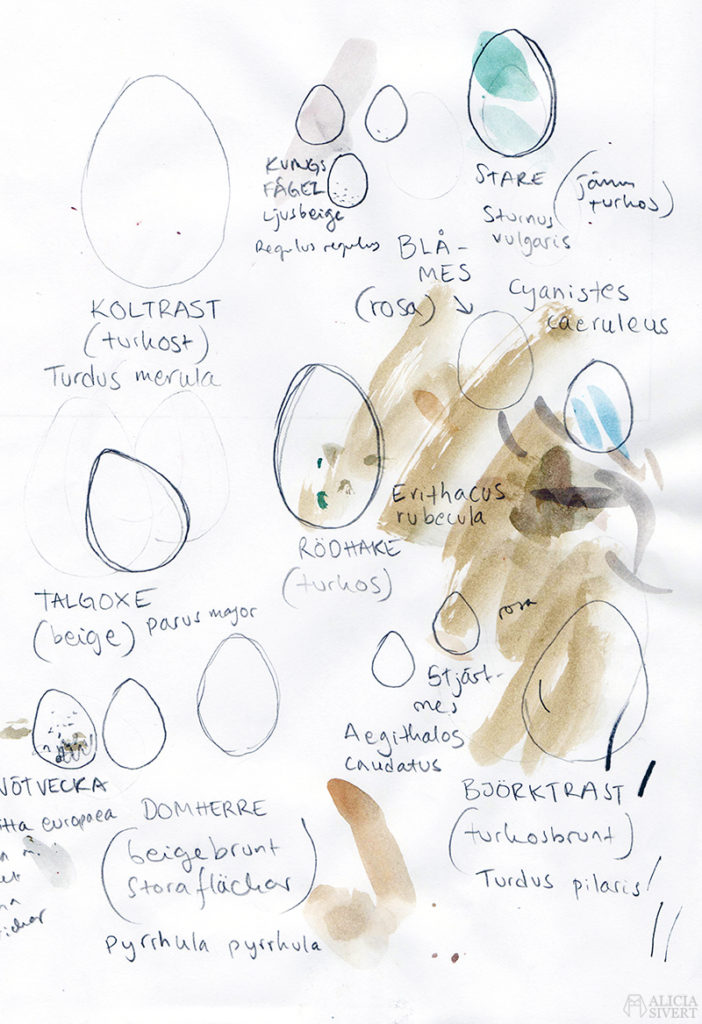 KUNGS
FÅGEL
Ljusbeige
Regulus regulus
STARE
(jämn
turkos)
Sturnus
vulgaris
BLÅ-
MES
(rosa)
Cyanistes
caeruleus
KOLTRAST
(turkost)
Turdus merula
Erithacus
rubecula
RÖDHAKE
(turkos)
TALGOXE
(beige)
parus major
rosa
Stjärt-
mes
Aegithalos
caudatus
NÖTVECKA
itta europaea
DOMHERRE
(beigebrunt
stora fläckar)
Pyrrhula pyrrhula
BJÖRKTRAST
(turkosbrunt)
Turdus pilaris
ALICIA
SIVERT